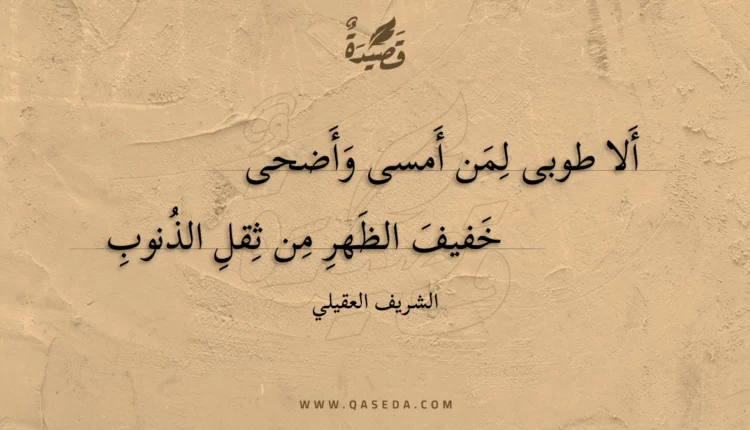 قَصِيدَةٌ
أَلا طوبى لِمَن أَمسى وَأَضحى
خَفيفَ الظَهرِ مِن ثِقلِ الذُنوبِ
الشريف العقيلي
WWW.QASEDA.COM